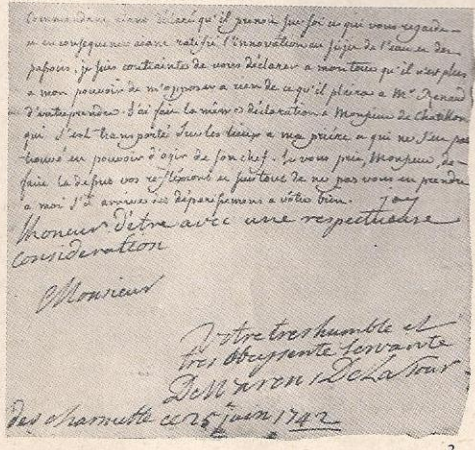 Commandeur aiant déclaré qu'il prenoit sur soi ce qui vous regarde
en consequence aiant ratifié l'innovation au sujet de l'eau et des
passons, je suis contrainte de vous déclarer a mon tour qu'il n'est plus
a mon pouvoir de m'opposer a rien de ce qu'il plaira a Mr. Renaud
d'entreprendre. J'ai fait la même déclaration a Monsieur de Chatillon
qui s'est transporté sur les lieux a ma priére et qui ne s'est pas
trouvé en pouvoir d'agir de son chef. Je vous prie, Monsieur, de
faire la dessus vos reflexions et surtout de ne pas vous en prendre
a moi s'il arrive des dépérissemens a vôtre bien. j'ay
lhoneur d'être avec une respectueuse
consideration
Monsieur
Votre tres humble et
tres obeyssente servante
De Warens De La Tour
des charmette ce 25 juin 1742
2